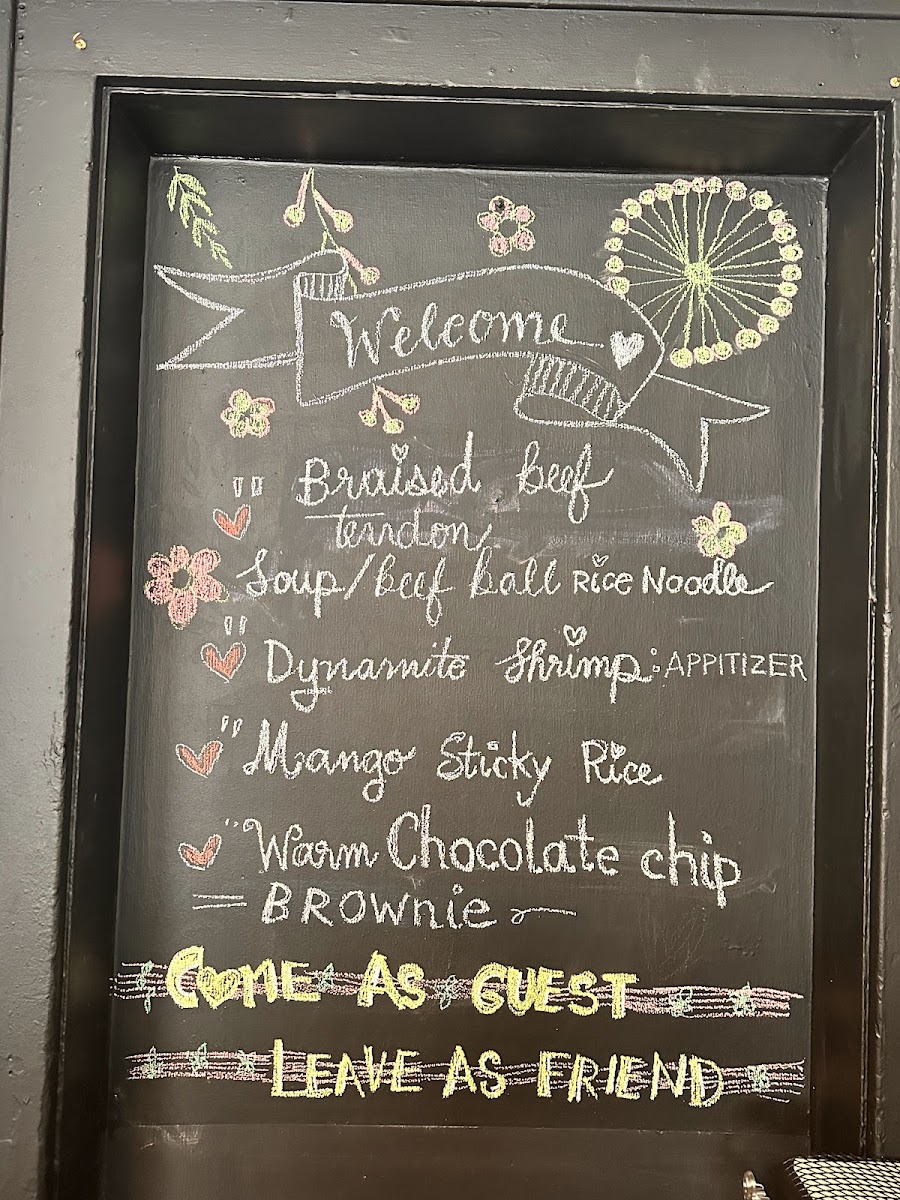 Welcome
Braised beef
tendon
Soup/Beef ball Rice Noodle
Dynamite Shrimp: APPITIZER
Mango Sticky Rice
Warm Chocolate chip
BROWNie
COME AS GUEST
LEAVE AS FRIEND